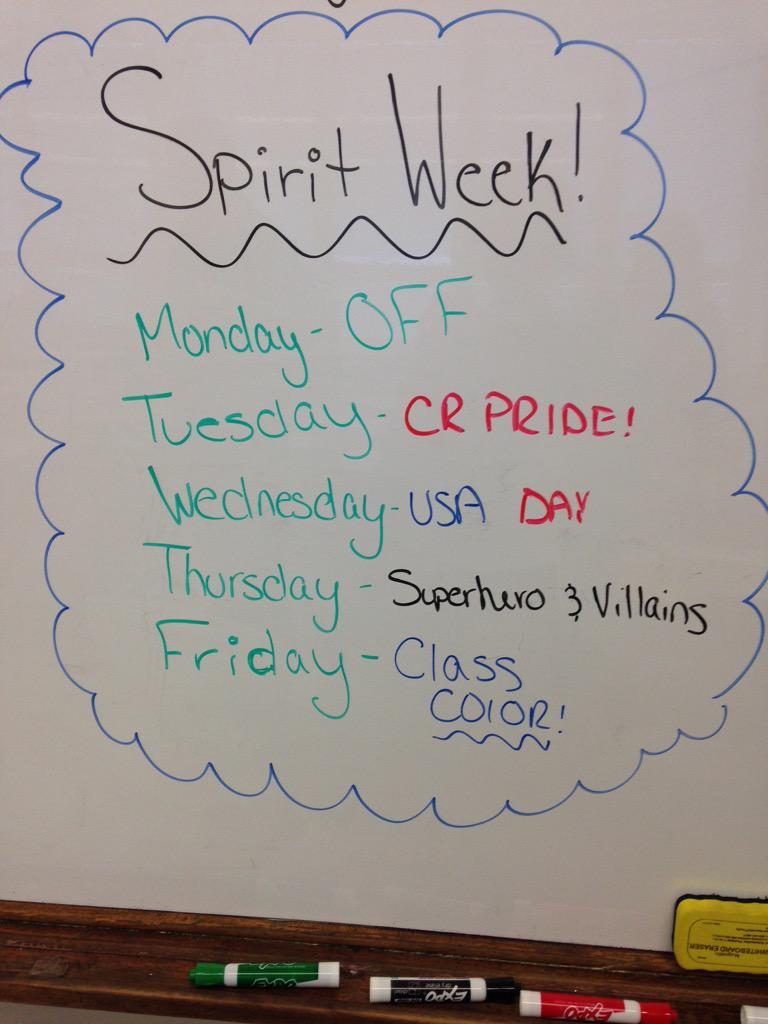 Spirit Week!
Monday - OFF
Tuesday - CR PRIDE!
Wednesday - USA DAY
Thursday - Superhero & Villains
Friday - Class
COlOR!
WHITEBOARD ERASER
EXPO
EXPO
EXPO